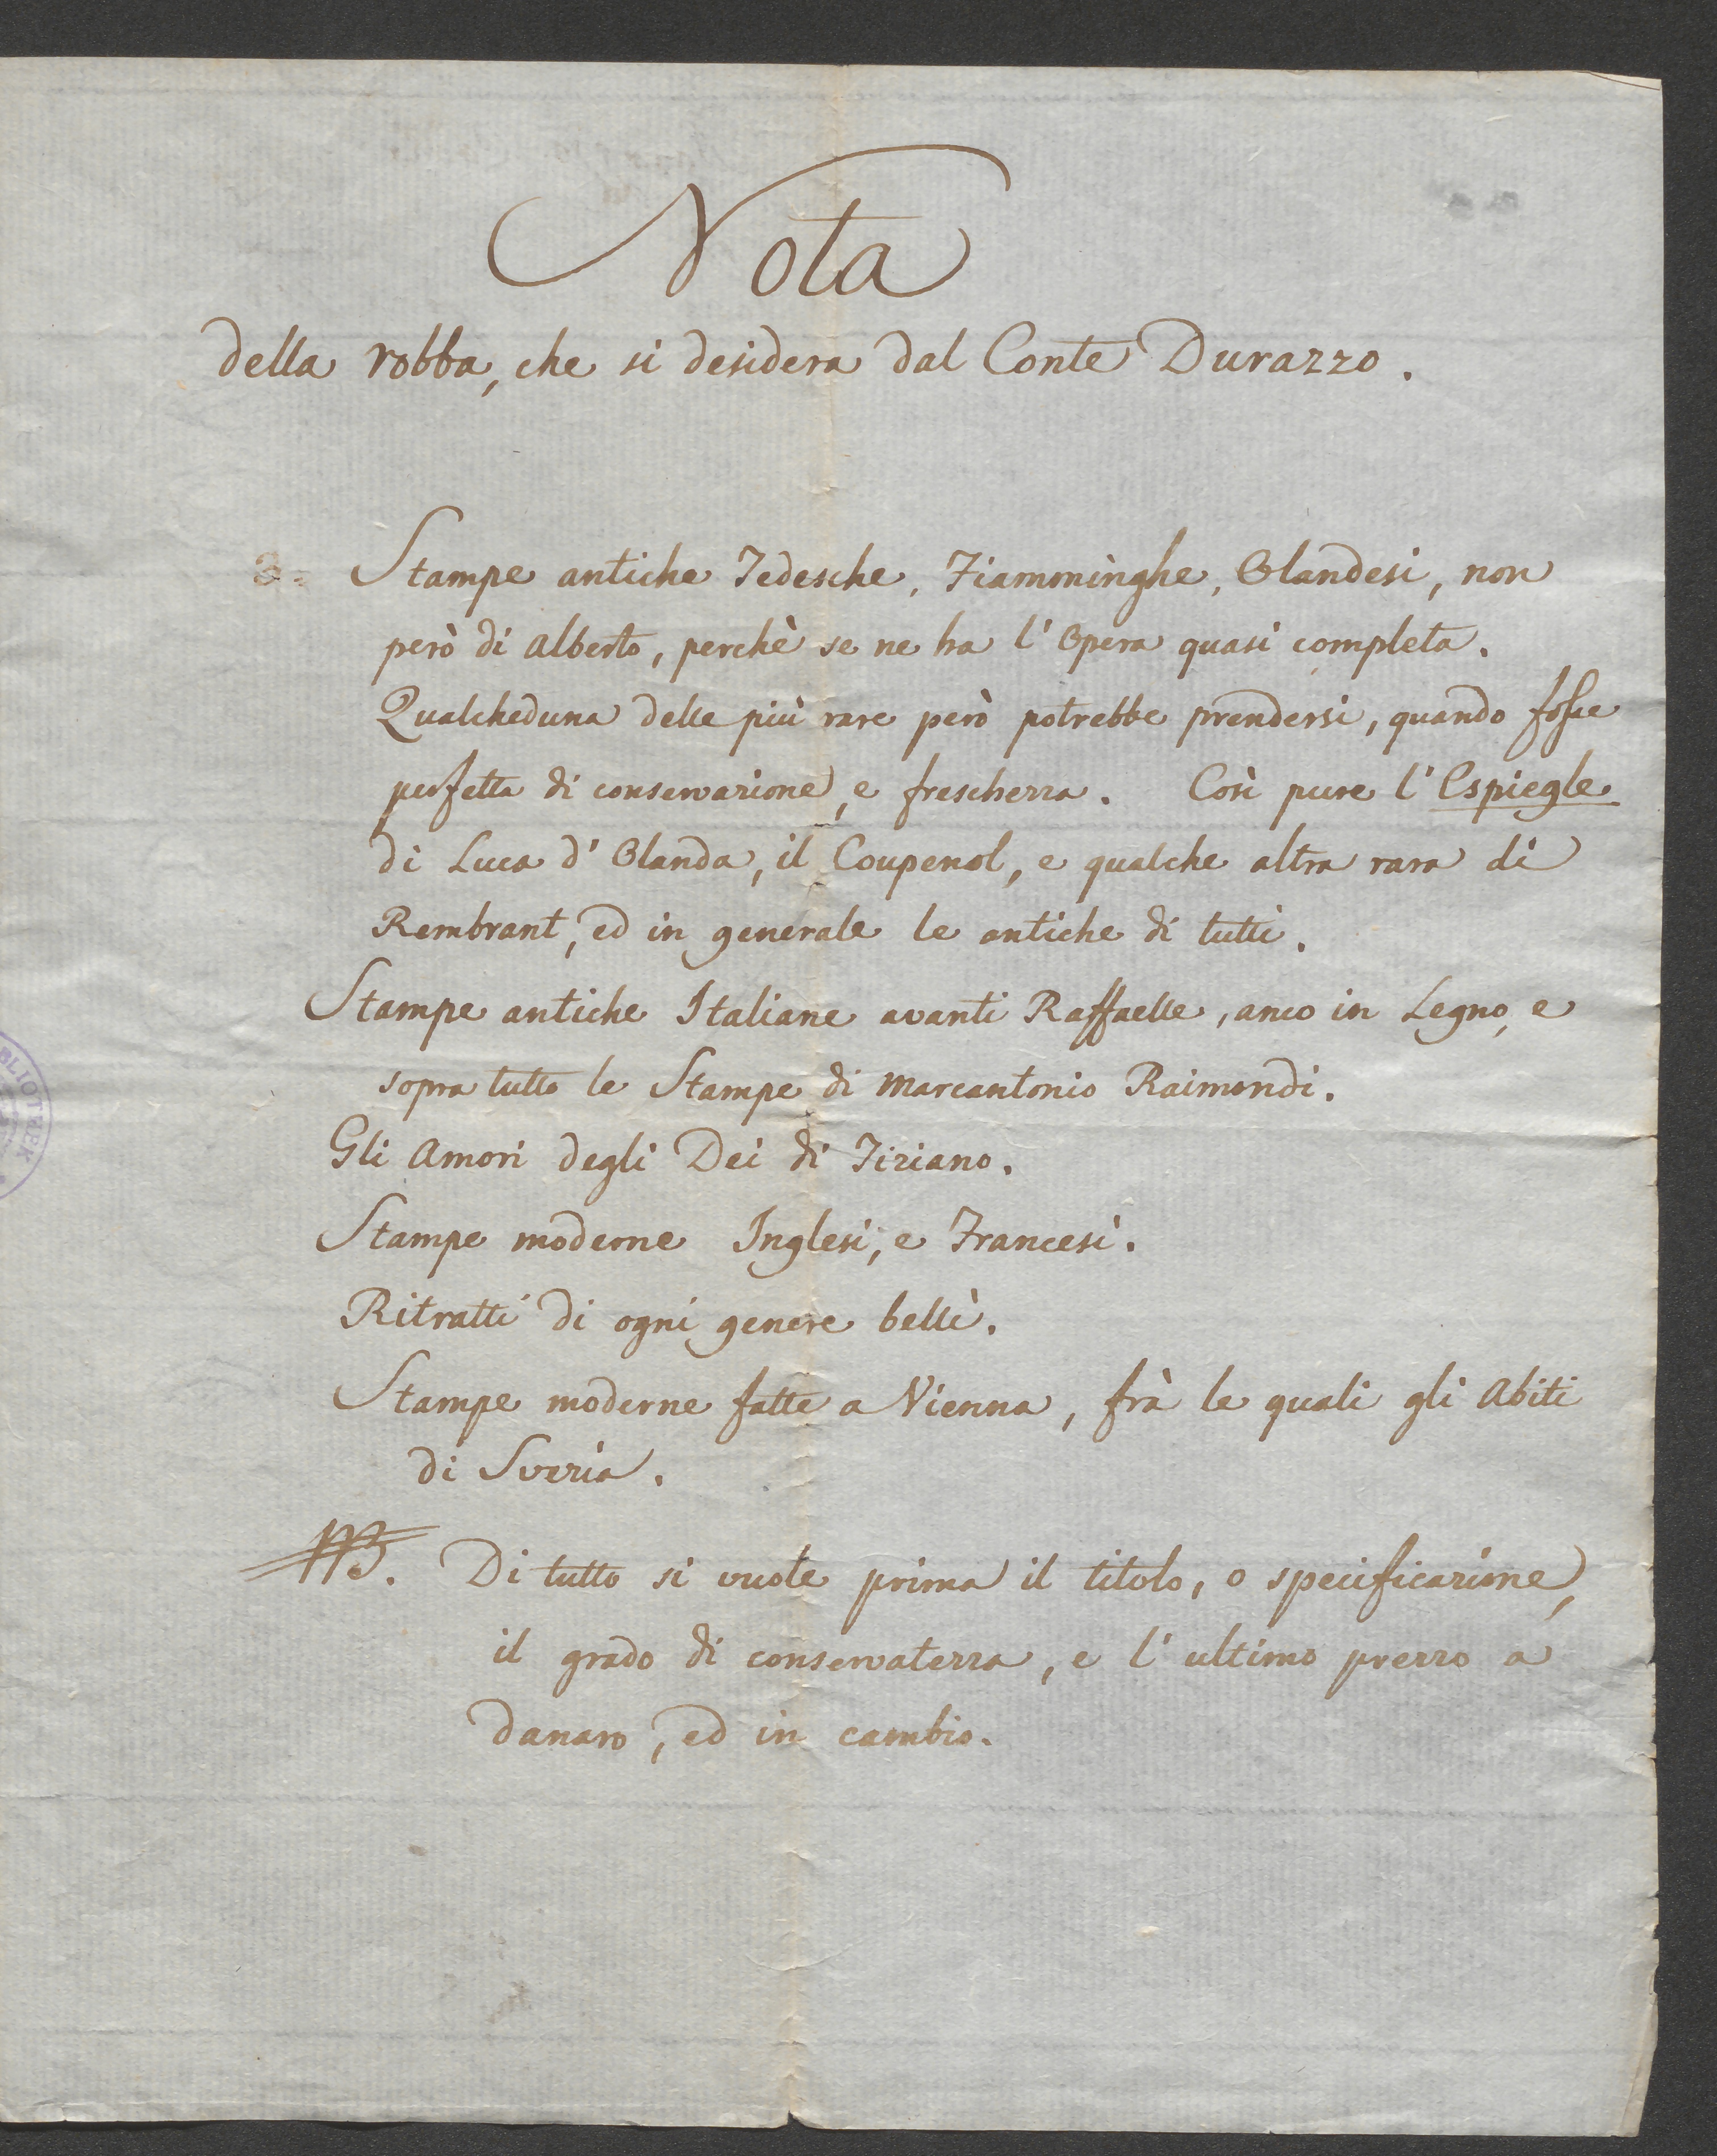 Nota
della robba, che si desidera dal Conte Durazzo.
Stampe antiche Tedesche, Fiamminghe, Olandesi, non
però di Alberto, perchè se ne ha l'Opera quasi completa.
Qualcheduna delle più rare però potrebbe prendersi, quando fosse
perfetta di conservazione, e freschezza. Così pure l'Espiegle
di Luca d'Olanda, il Coupenol, e qualche altra rara di
Rembrant, ed in generale le antiche di tutti.
Stampe antiche Italiane avanti Raffaelle, anco in Legno, e
sopra tutto le Stampe di Marcantonio Raimondi.
Gli Amori degli Dei di Tiziano.
Stampe moderne Inglesi, e Francesi.
Ritratti di ogni genere belli.
Stampe moderne fatte a Vienna, frà le quali gli Abiti
di Svezia.
NB. Di tutto si vuole prima il titolo, o specificazione,
il grado di conservatezza, e l'ultimo prezzo a
danaro, ed in cambio.
BLIOTHEK